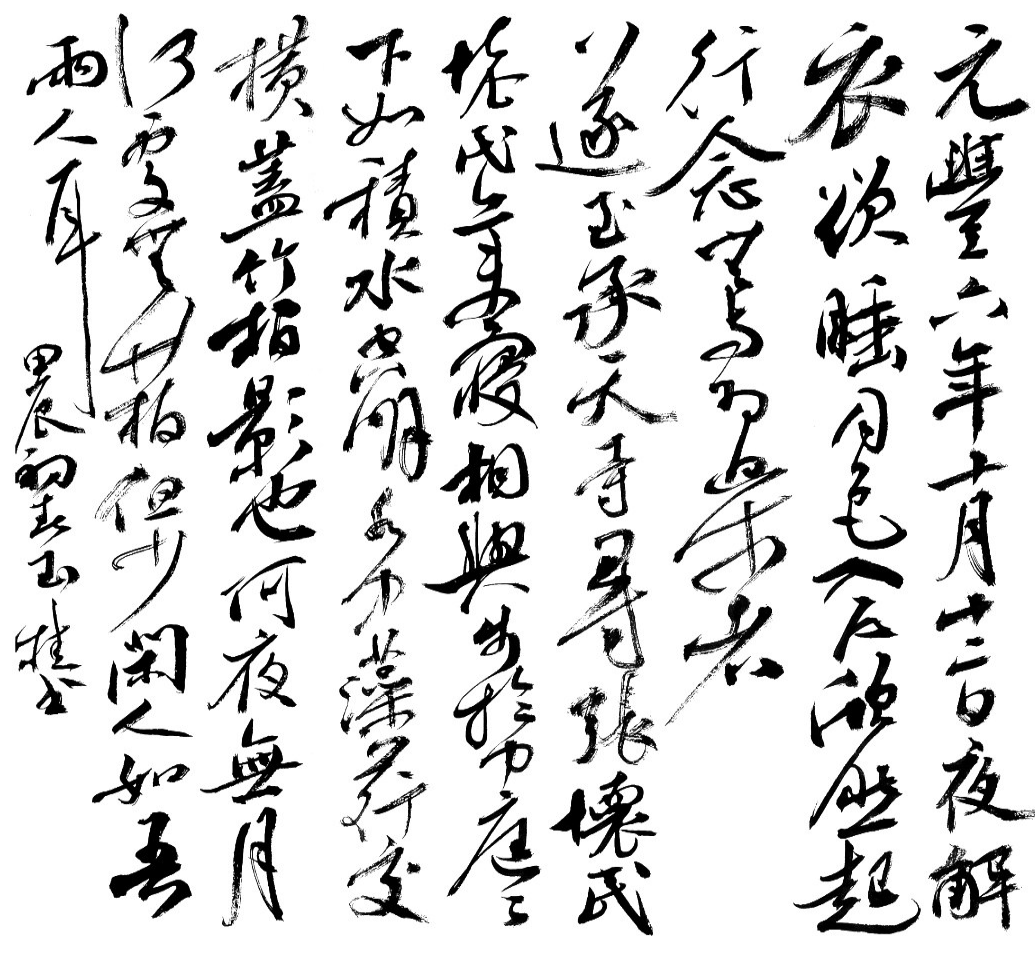 元豐六年十月十二日夜解
衣欲睡月色入户欣然起
行念無与为樂者
遂至承天寺尋張懷民
懷民亦未寢相與步於中庭〻
下如積水空明水中藻荇交
横蓋竹柏影也何夜無月
何處無竹柏但少閑人如吾
兩人耳
甲辰初玉桂书